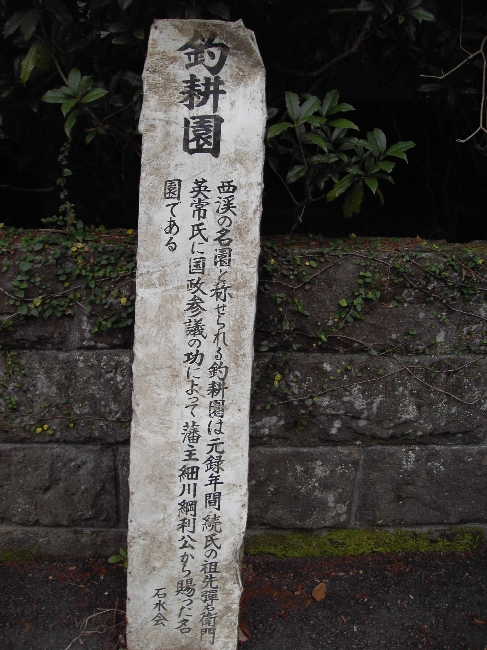 釣耕園
西渓の名園と称せられる釣耕園は元録年間続氏の祖先弾右衛門
英常氏に国政参議の功によって藩主細川綱利公から賜った名
園である
石水会